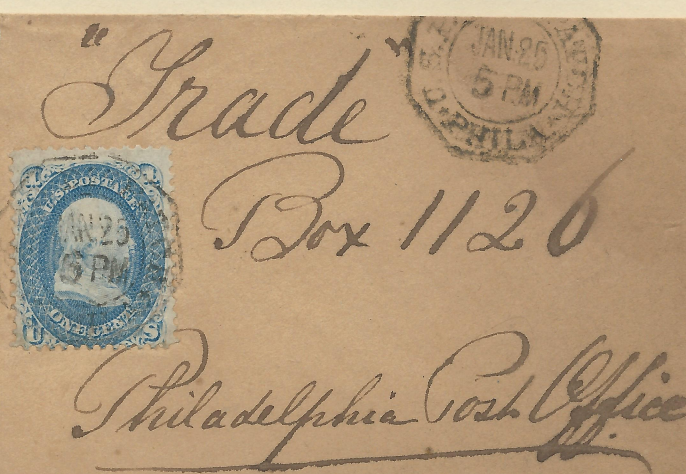 "Trade"
JAN 25
5 PM
PHILA
Box 1126
U.S. POSTAGE
JAN 25
5 PM
ONE CENT
U S
Philadelphia Post Office